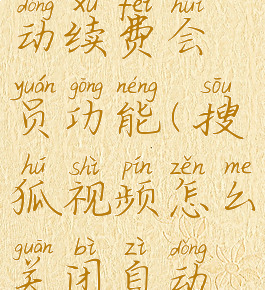 dòng xù fèi huì
动续费会
yuán gōng néng sōu
员功能(搜
hú shì pín zěn me
狐视频怎么
guān bì zì dòng
关闭自动